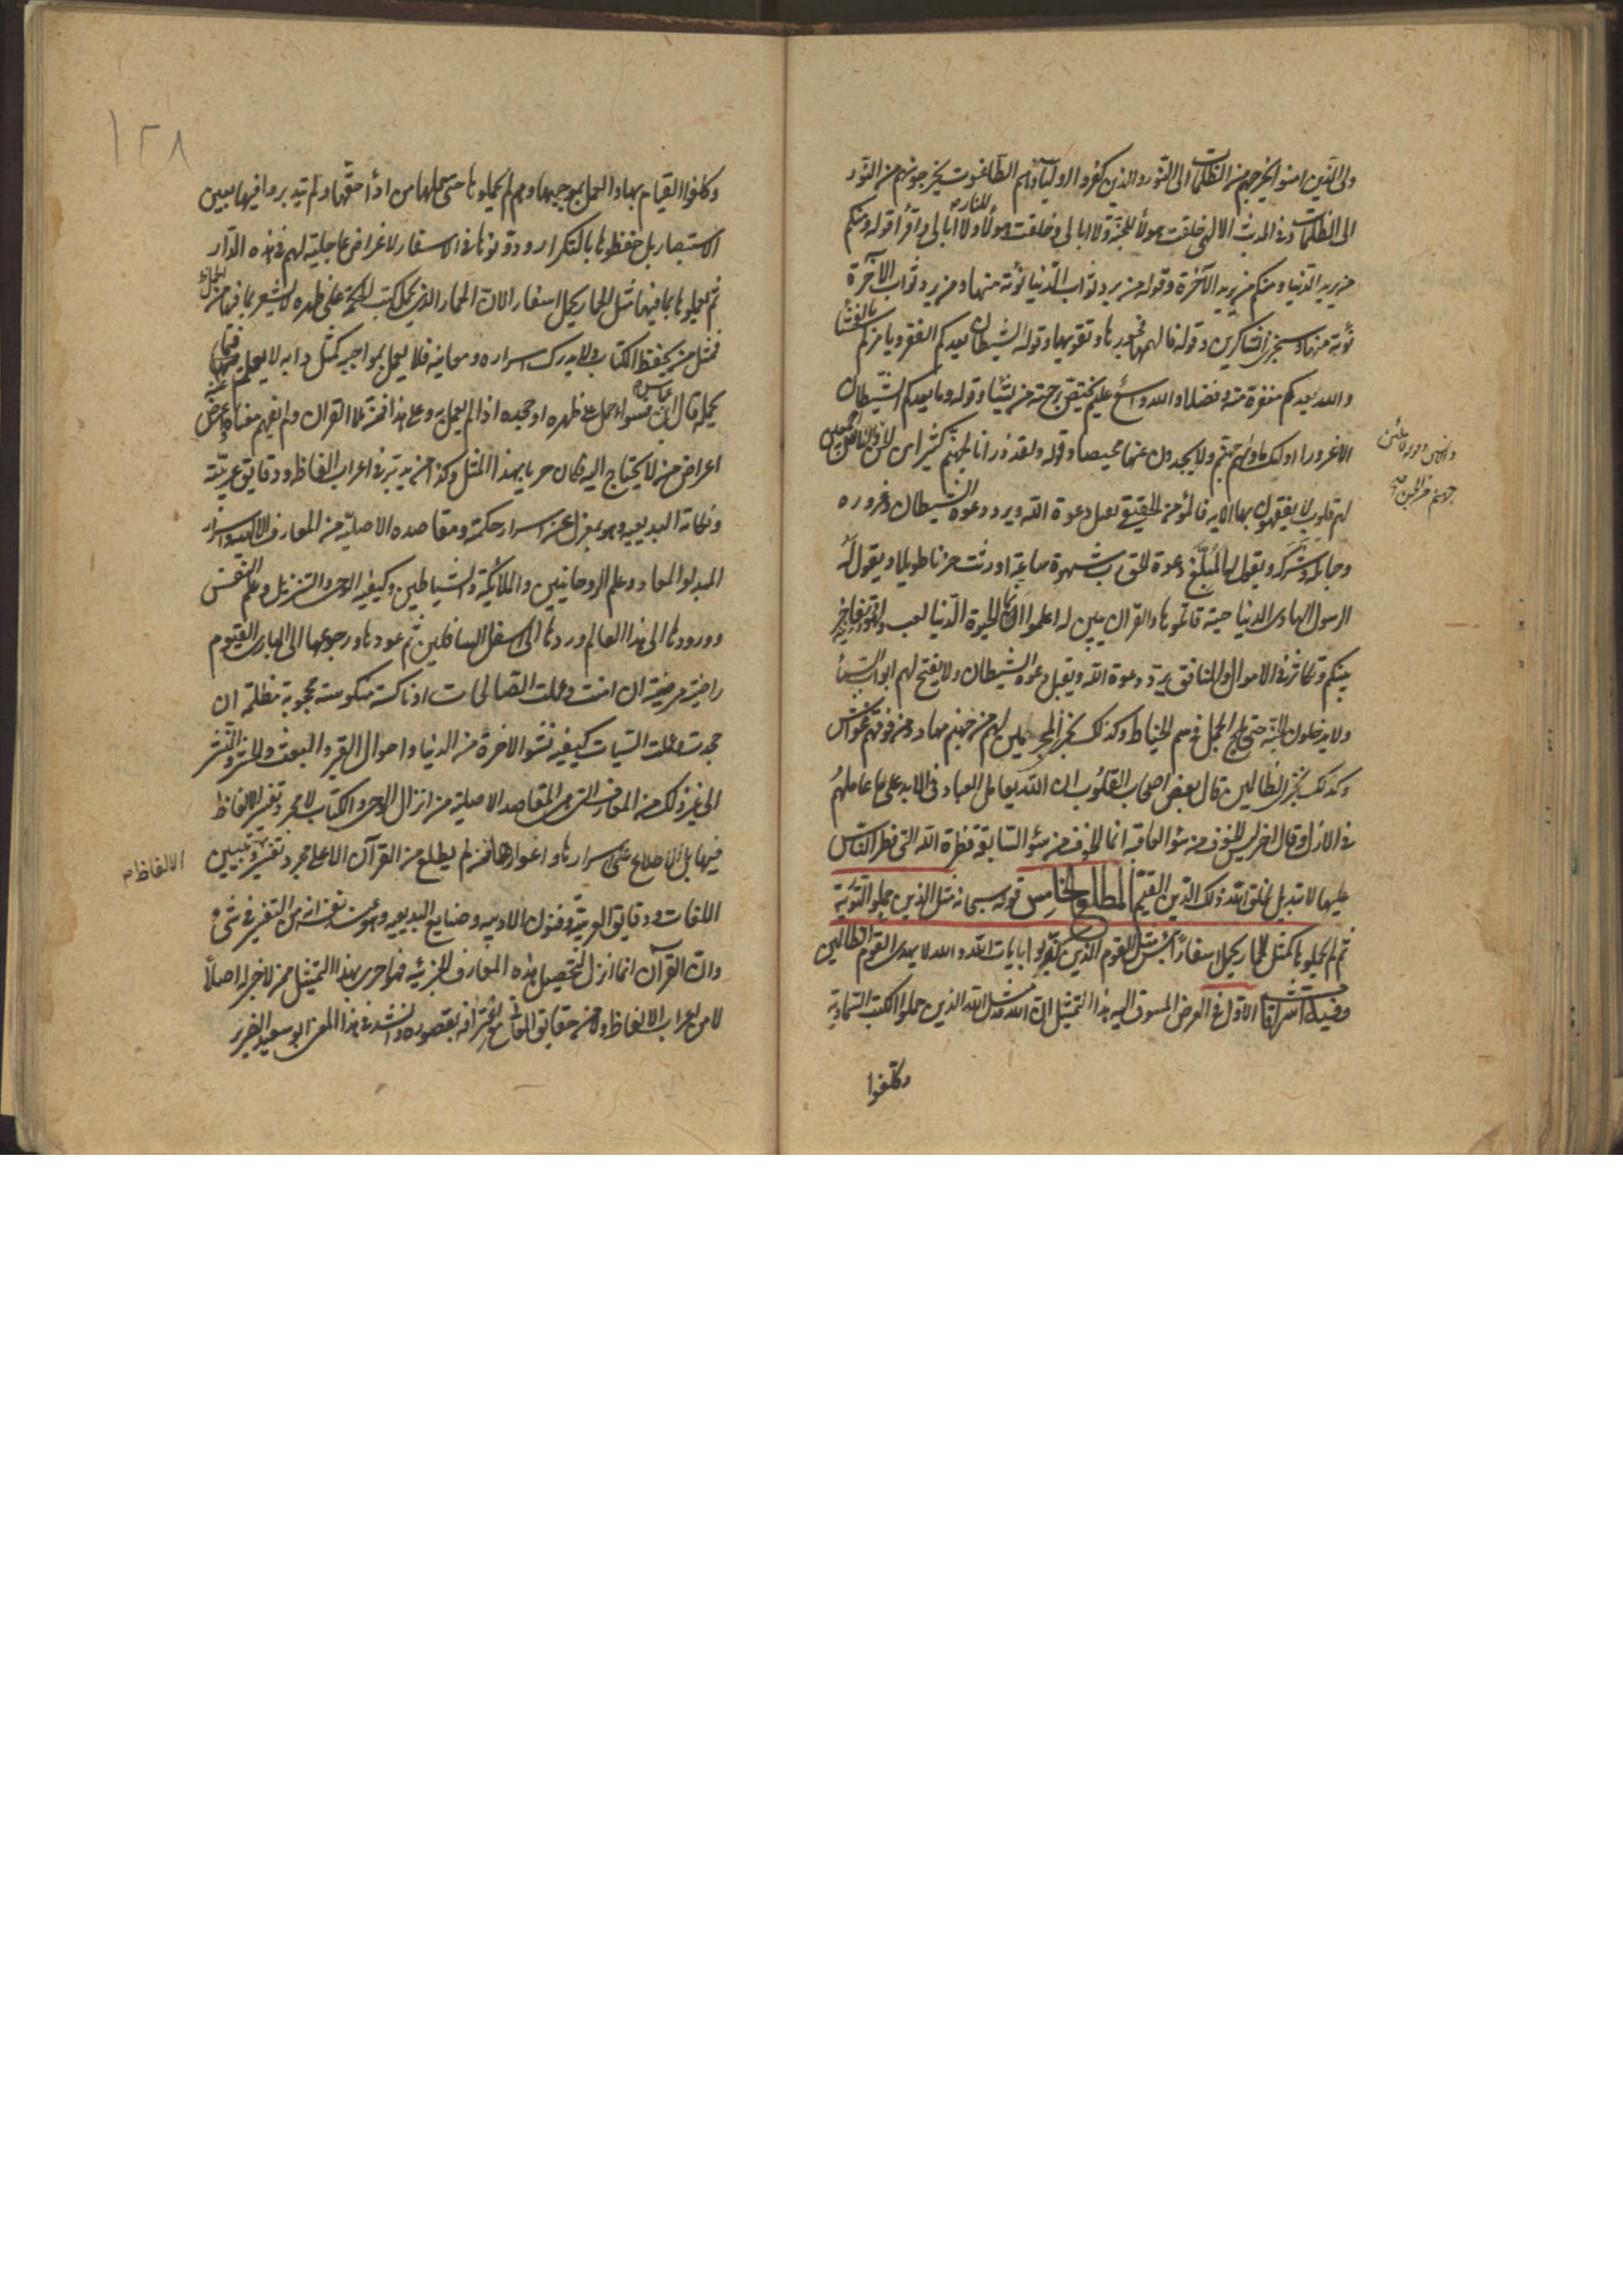 ولى الذين امنوا يخرجهم من الظلمات الى النور والذين كفروا اولياؤهم الطاغوت يخرجونهم من النور
الى الظلمات وفى الحديث الالهى خلقت هولاء للجنة ولا ابالى وخلقت هولاء للنار ولا ابالى واقرأ قوله ومنكم
من يريد الدنيا ومنكم من يريد الآخرة وقوله من يرد ثواب الدنيا نؤته منها ومن يرد ثواب الآخرة
نؤته منها وسنجزى الشاكرين وقوله فالهمها فجورها وتقويها وقوله الشيطان يعدكم الفقر ويامركم بالفحشا
والله يعدكم مغفرة منه وفضلا والله واسع عليم يختص برحمته من يشاء وقوله وما يعدهم الشيطان
الا غرورا اولئك ماويهم جهنم ولا يجدون عنها محيصا وقوله ولقد ذرانا لجهنم كثيرا من
لهم قلوب لا يفقهون بها الايه فالمؤمن الحقيقى يقبل دعوة الله ويرد دعوة الشيطان وغروره
وحبائله وشركه ويقول له المبلغ دعوة الحق رب شهوة ساعة اورثت حزنا طويلا ويقول له
الرسول الهادى الدنيا جيفة والقرآن يبين له اعلموا انما الحيوة الدنيا لعب ولهو وزينة وتفاخر
بينكم وتكاثر فى الاموال والمنافق يرد دعوة الله ويقبل دعوة الشيطان ولا يفتح لهم ابواب السماء
ولا يدخلون الجنة حتى يلج الجمل فى سم الخياط وكذلك نجزى المجرمين لهم من جهنم مهاد ومن فوقهم غواش
وكذلك نجزى الظالمين قال بعض اصحاب القلوب ان الله يعامل العباد فى الابد على ما عاملهم
فى الازل وقال اخر ليس الخوف من سؤ العاقبة انما الخوف من سؤ السابقة فطرة الله التى فطر الناس
عليها لا تبديل لخلق الله ذلك الدين القيم المطلع الخامس قوله سبحانه مثل الذين حملوا التورية
ثم لم يحملوها كمثل الحمار يحمل اسفارا بئس مثل القوم الذين كذبوا بايات الله والله لا يهدى القوم الظالمين
وفيه اشراقات الاول فى الغرض المسوق اليه هذا التمثيل ان الله مثل الذين حملوا الكتب السماوية
وكلفوا
١٢٨
وكلفوا القيام بها والعمل بموجبها وهم لم يحملوها حتى حملها من ادأ حقها ولم تيدبروا فيها بعين
الاستبصار بل حفظوها بالتكرار ودونوها فى الاسفار لاغراض عاجلية لهم فى هذه الدار
ثم لم يعملوا بما فيها مثل الحمار يحمل اسفارا لان الحمار الذى يحمل كتب الحكمة على ظهره لا يشعر بما فيها
فمثل من يحفظ الكتاب ولا يدرك اسراره ومعانيه فلا يعمل بمواجبه كمثل دابه لا يعلم
يحمله قال ابن عباس فسواء حمل على ظهره او جحده اذا لم يعمل به وعلى هذا فمن تلا القرآن ولم يفهم معناه واعرض عنه
اعراض من لا يحتاج اليه كان حريا بهذا المثل وكذا من تدبر فى اعراب الفاظه ودقايق عربيته
ونكاته البديعيه وهو بمعزل عن اسرار حكمته ومقاصده الاصلية من المعارف الالهية واسرار
المبدا والمعاد وعلم الروحانيين والملائكة والشياطين وكيفية الوحى والتنزيل وعلم النفس
وورودها الى هذا العالم وردها الى اسفل السافلين ثم عودها ورجوعها الى البارى القيوم
راضية مرضية ان امنت وعملت الصالحات او ناكسة منكوسة محجوبة مظلمة ان
جحدت وعملت السيات كيفية نشو الاخرة من الدنيا واحوال القبر والبعث والحشر والنشر
الى غير ذلك من المعارف التى هى المقاصد الاصلية من انزال الوحى والكتاب لا مجرد تغير الالفاظ
فيها بل الاطلاع على اسرارها واغوارها فمن لم يطلع من القرآن الا على مجرد تفسير وتبيين
الالفاظ
اللغات ودقايق العربية وفنون الادبيه وصنايع البديعيه
وان القرآن انما انزل لتحصيل هذه المعارف الجزئية فهو احرى بهذا التمثيل ممن لا خبر له اصلا
لا من اعراب الالفاظ ولا من حقايق المعانى مع اعترافه بقصوره وانشد فى هذا المعنى ابو سعيد الضرير